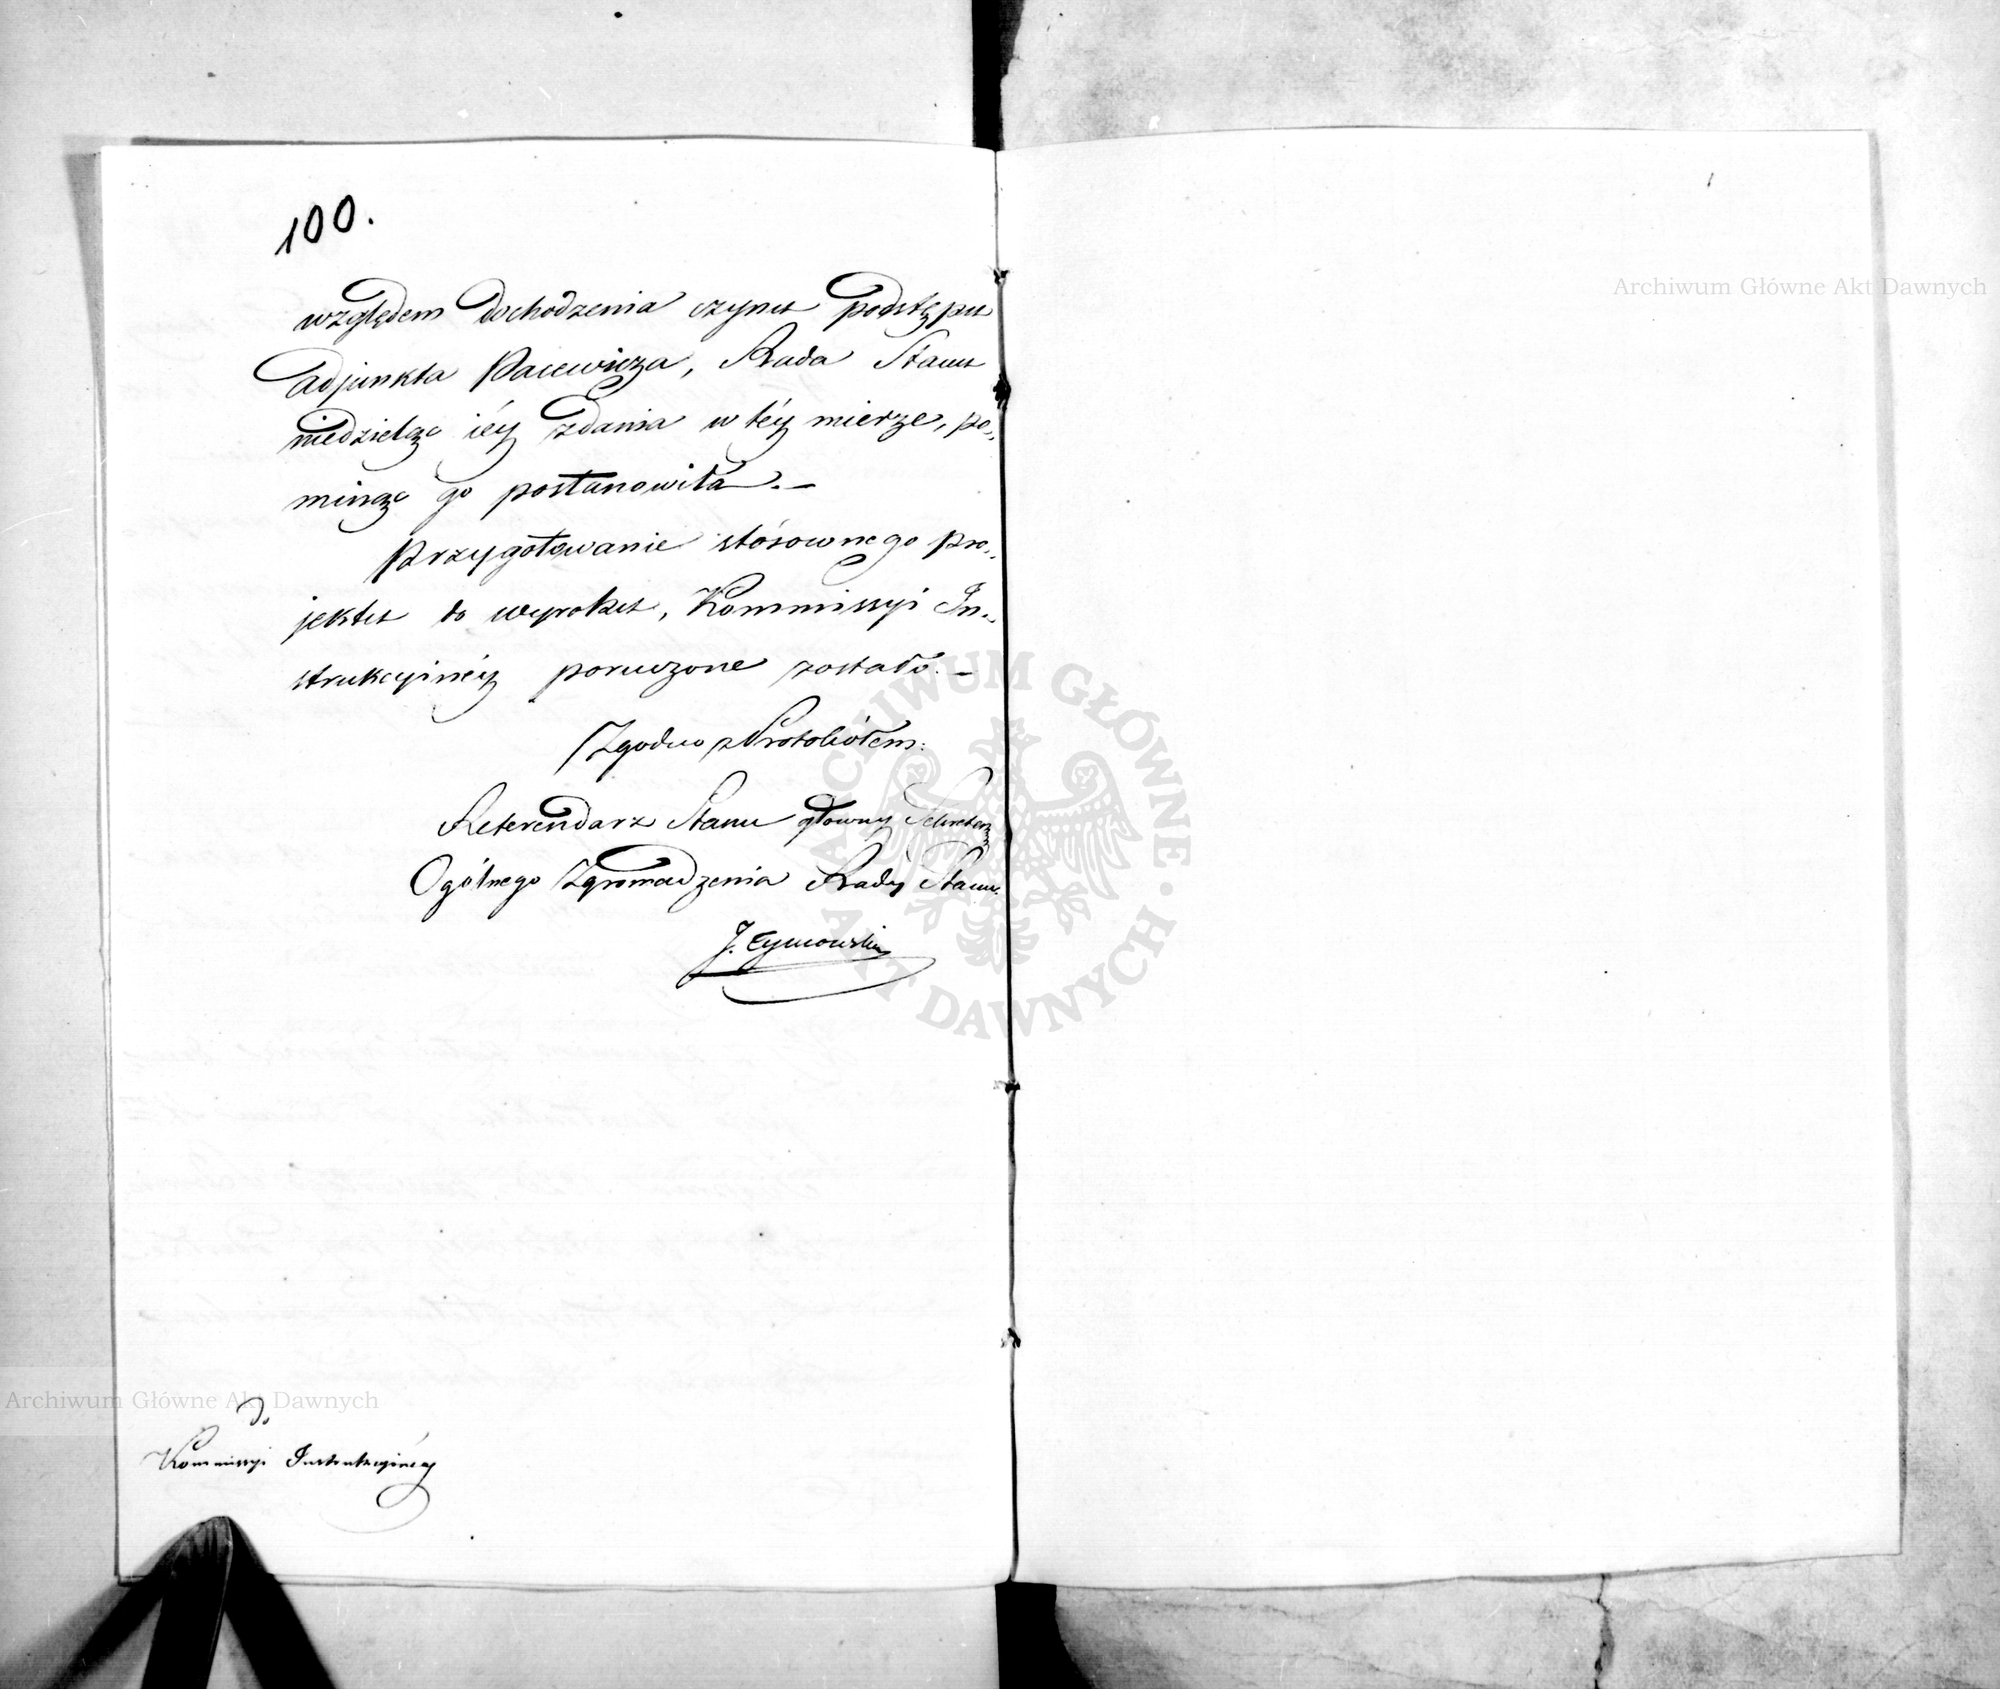 100.
względem dochodzenia czynu podstępu
Adjunkta Pacewicza, Rada Stanu
niedzieląc iéy zdania w téy mierze, po„
minąć go postanowiła.—
Przygotowanie stósownego pro„
jektu do wyroku, Kommissyi In„
strukcyinéy poruczone zostało.—
Zgodno z Protokółem:
Referendarz Stanu główny Sekretarz
Ogólnego Zgromadzenia Rady Stanu.
J. Tymowski
Do
Kommissyi Instrukcyinéy
Archiwum Główne Akt Dawnych
Archiwum Główne Akt Dawnych
ARCHIWUM GŁÓWNE AKT DAWNYCH